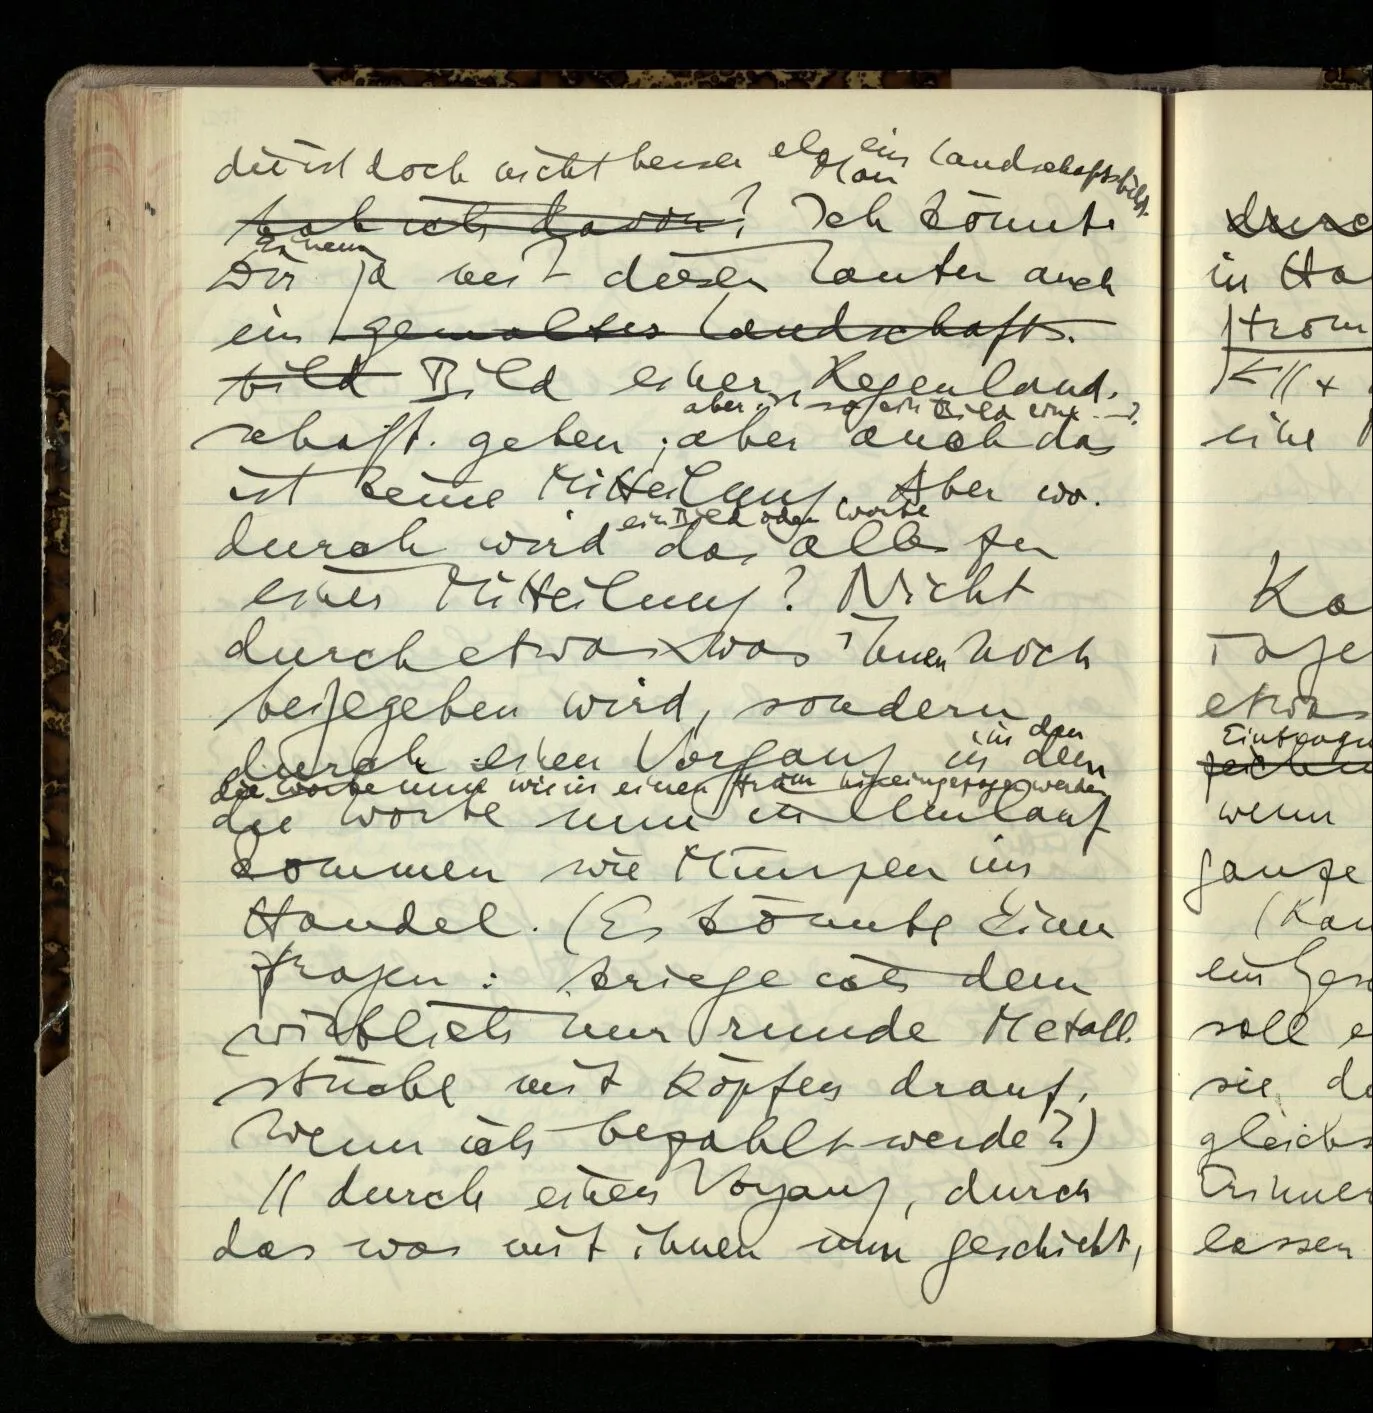 die ist doch nicht besser als ein Landschaftsbild.
Man
hab ich davon? Ich könnte
Einem
Dir ja mit diesen Lauten auch
ein gemaltes Landschafts-
bild Bild einer Regenland-
aber ist so ein Bild eine —?
schaft geben; aber auch das
ist keine Mitteilung. Aber wo-
ein Bild oder Worte
durch wird das alles zu
einer Mitteilung? Nicht
durch etwas was ihnen noch
beigegeben wird, sondern
in den
durch einen Vorgang in dem
die Worte nun wie in einen Strom hineingezogen werden
die Worte nun in Umlauf
kommen wie Münzen im
Handel. (Es könnte Einer
fragen: kriege ich denn
wirklich nur runde Metall-
stücke mit Köpfen drauf,
wenn ich bezahlt werde?)
// durch einen Vorgang, durch
das was mit ihnen nun geschieht,
durc
in Ha
Strom
← // x
eine
Ka
Tage
etwas
Eintragu
zeichn
wenn
ganze
(Kan
ein Ges
soll e
sie da
gleichs
Erinner
lassen